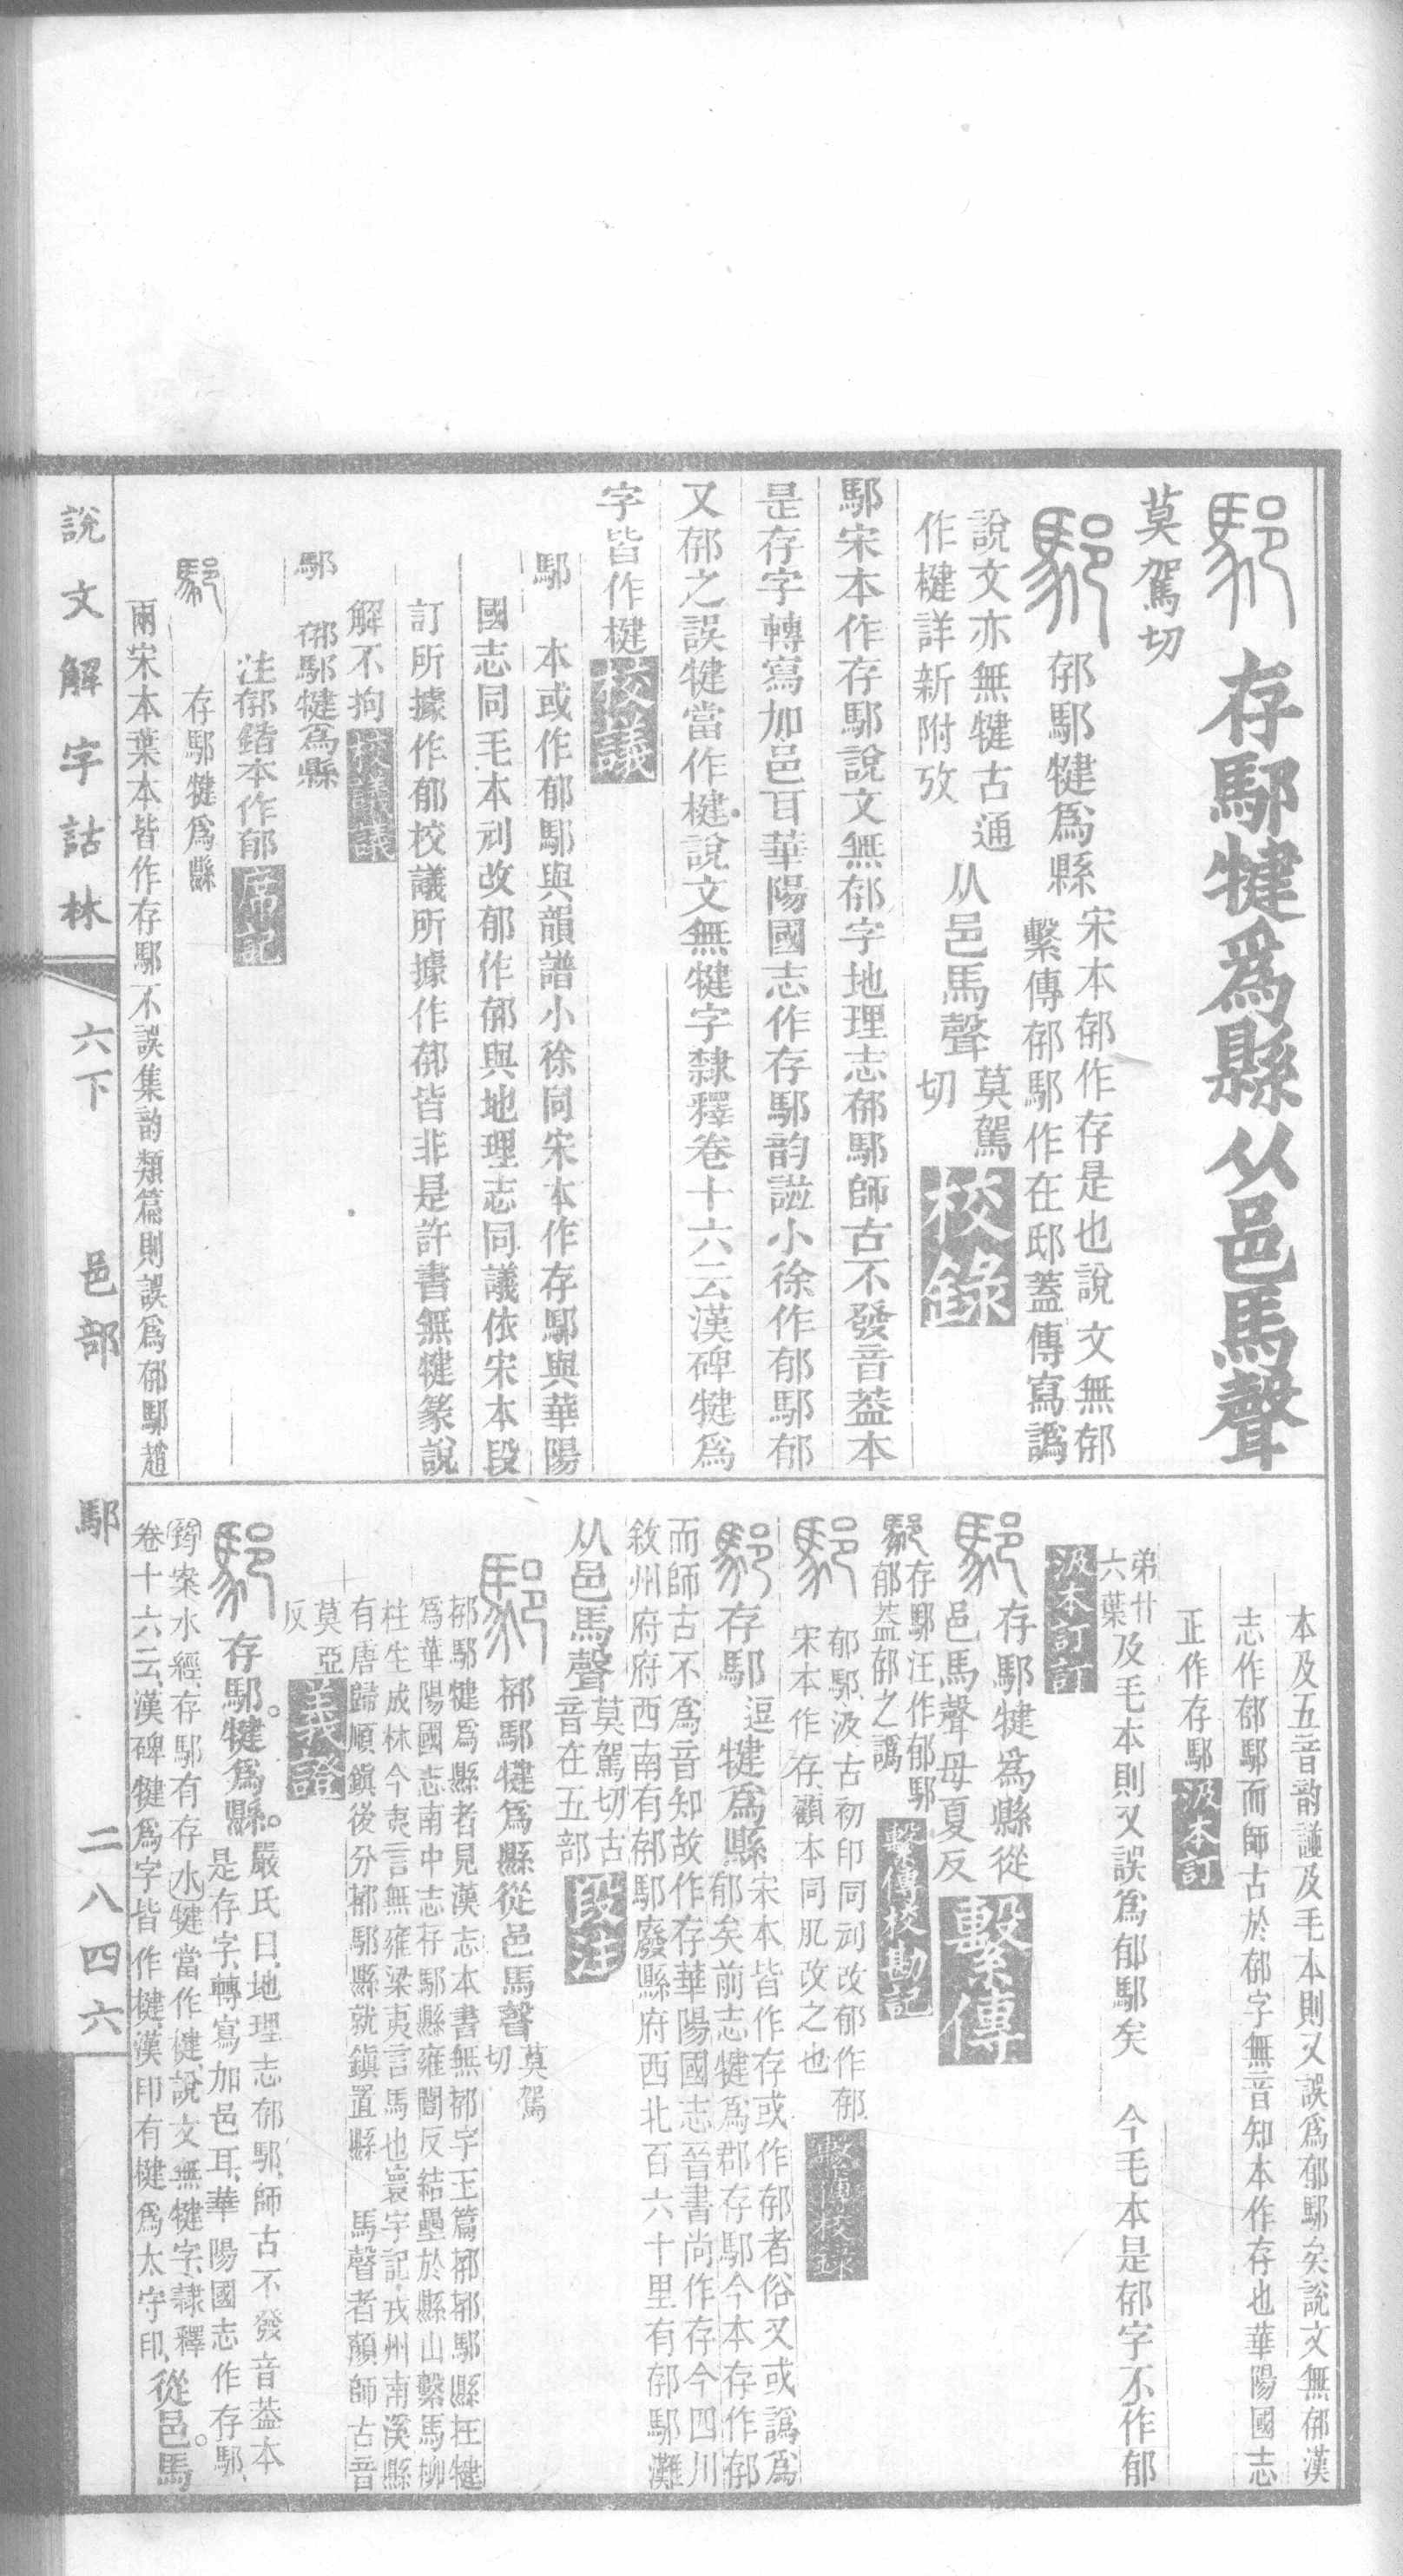 存䣕犍爲縣从邑馬聲
莫駕切
䣖䣕犍爲縣宋本䣖作存是也說文無䣖
繫傳䣖䣕作在邸蓋傳寫譌
說文亦無犍古通
作楗詳新附攷
从邑馬聲莫駕切
校錄
䣕宋本作存䣕說文無䣖字地理志䣖䣕師古不發音葢本
是存字轉寫加邑耳華陽國志作存䣕韵譜小徐作郁䣕郁
又䣖之誤犍當作楗說文無犍字隸釋卷十六云漢碑犍爲
字皆作楗校議
䣕 本或作郁䣕與韻譜小徐同宋本作存䣕與華陽
國志同毛本刓改郁作䣖與地理志同議依宋本段
訂所據作郁校議所據作䣖皆非是許書無犍篆說
解不拘校議議
䣕 䣖䣕犍爲縣
注䣖鍇本作郁席記
存䣕犍爲縣
兩宋本葉本皆作存䣕不誤集韵類篇則誤爲䣖䣕趙
本及五音韵譜及毛本則又誤爲郁䣕矣說文無䣖漢
志作䣖䣕而師古於䣖字無音知本作存也華陽國志
正作存䣕汲本訂
弟廿
六葉及毛本則又誤爲郁䣕矣 今毛本是䣖字不作郁
汲本訂訂
存䣕犍爲縣從
邑馬聲母夏反繫傳
存䣕汪作郁䣕
郁葢䣖之譌繫傳校勘記
郁䣕汲古初印同刓改郁作䣖
宋本作存顧本同肊改之也繫傳校錄
存䣕逗犍爲縣宋本皆作存或作䣖者俗又或譌爲
郁矣前志犍爲郡存䣕今本存作䣖
而師古不爲音知故作存華陽國志晉書尚作存今四川
敘州府府西南有䣖䣕廢縣府西北百六十里有䣖䣕灘
从邑馬聲莫駕切古
音在五部段注
䣖䣕犍爲縣從邑馬聲莫駕
切
䣖䣕犍爲縣者見漢志本書無䣖字玉篇䣖䣖䣕縣在犍
爲華陽國志南中志存䣕縣雍闓反結壘於縣山繫馬柳
柱生成林今夷言無雍梁夷言馬也寰宇記戎州南溪縣
有唐歸順鎭後分䣖䣕縣就鎭置縣 馬聲者顏師古音
莫亞
反義證
存䣕。犍爲縣。嚴氏曰、地理志䣖䣕、師古不發音葢本
是存字、轉寫加邑耳、華陽國志作存䣕、
筠案水經、存䣕有存水犍當作楗、說文無犍字、隸釋
卷十六云、漢碑犍爲字皆作楗、漢印有楗爲太守印、從邑。馬
說文解字詁林 六下 邑部 䣕 二八四六